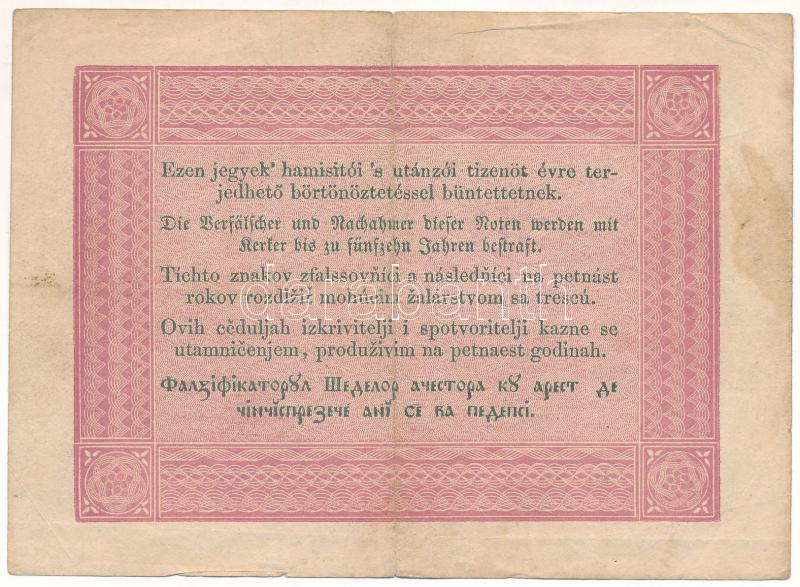 Ezen jegyek' hamisitói 's utánzói tizenöt évre ter-
jedhető börtönöztetéssel büntettetnek.
Die Verfälscher und Nachahmer dieser Noten werden mit
Kerker bis zu fünfzehn Jahren bestraft.
Tíchto znakov zfalssovňíci a následňíci na petnást
rokov rozdížiť mohúcim žalárstvom sa trescú.
Ovih cěduljah izkrivitelji i spotvoritelji kazne se
utamničenjem, produživim na petnaest godinah.
Фалсіфікаторꙋл Шеделор ачестора кꙋ арест де
чінчіспрезече ані се ва педепсі.
darabanth